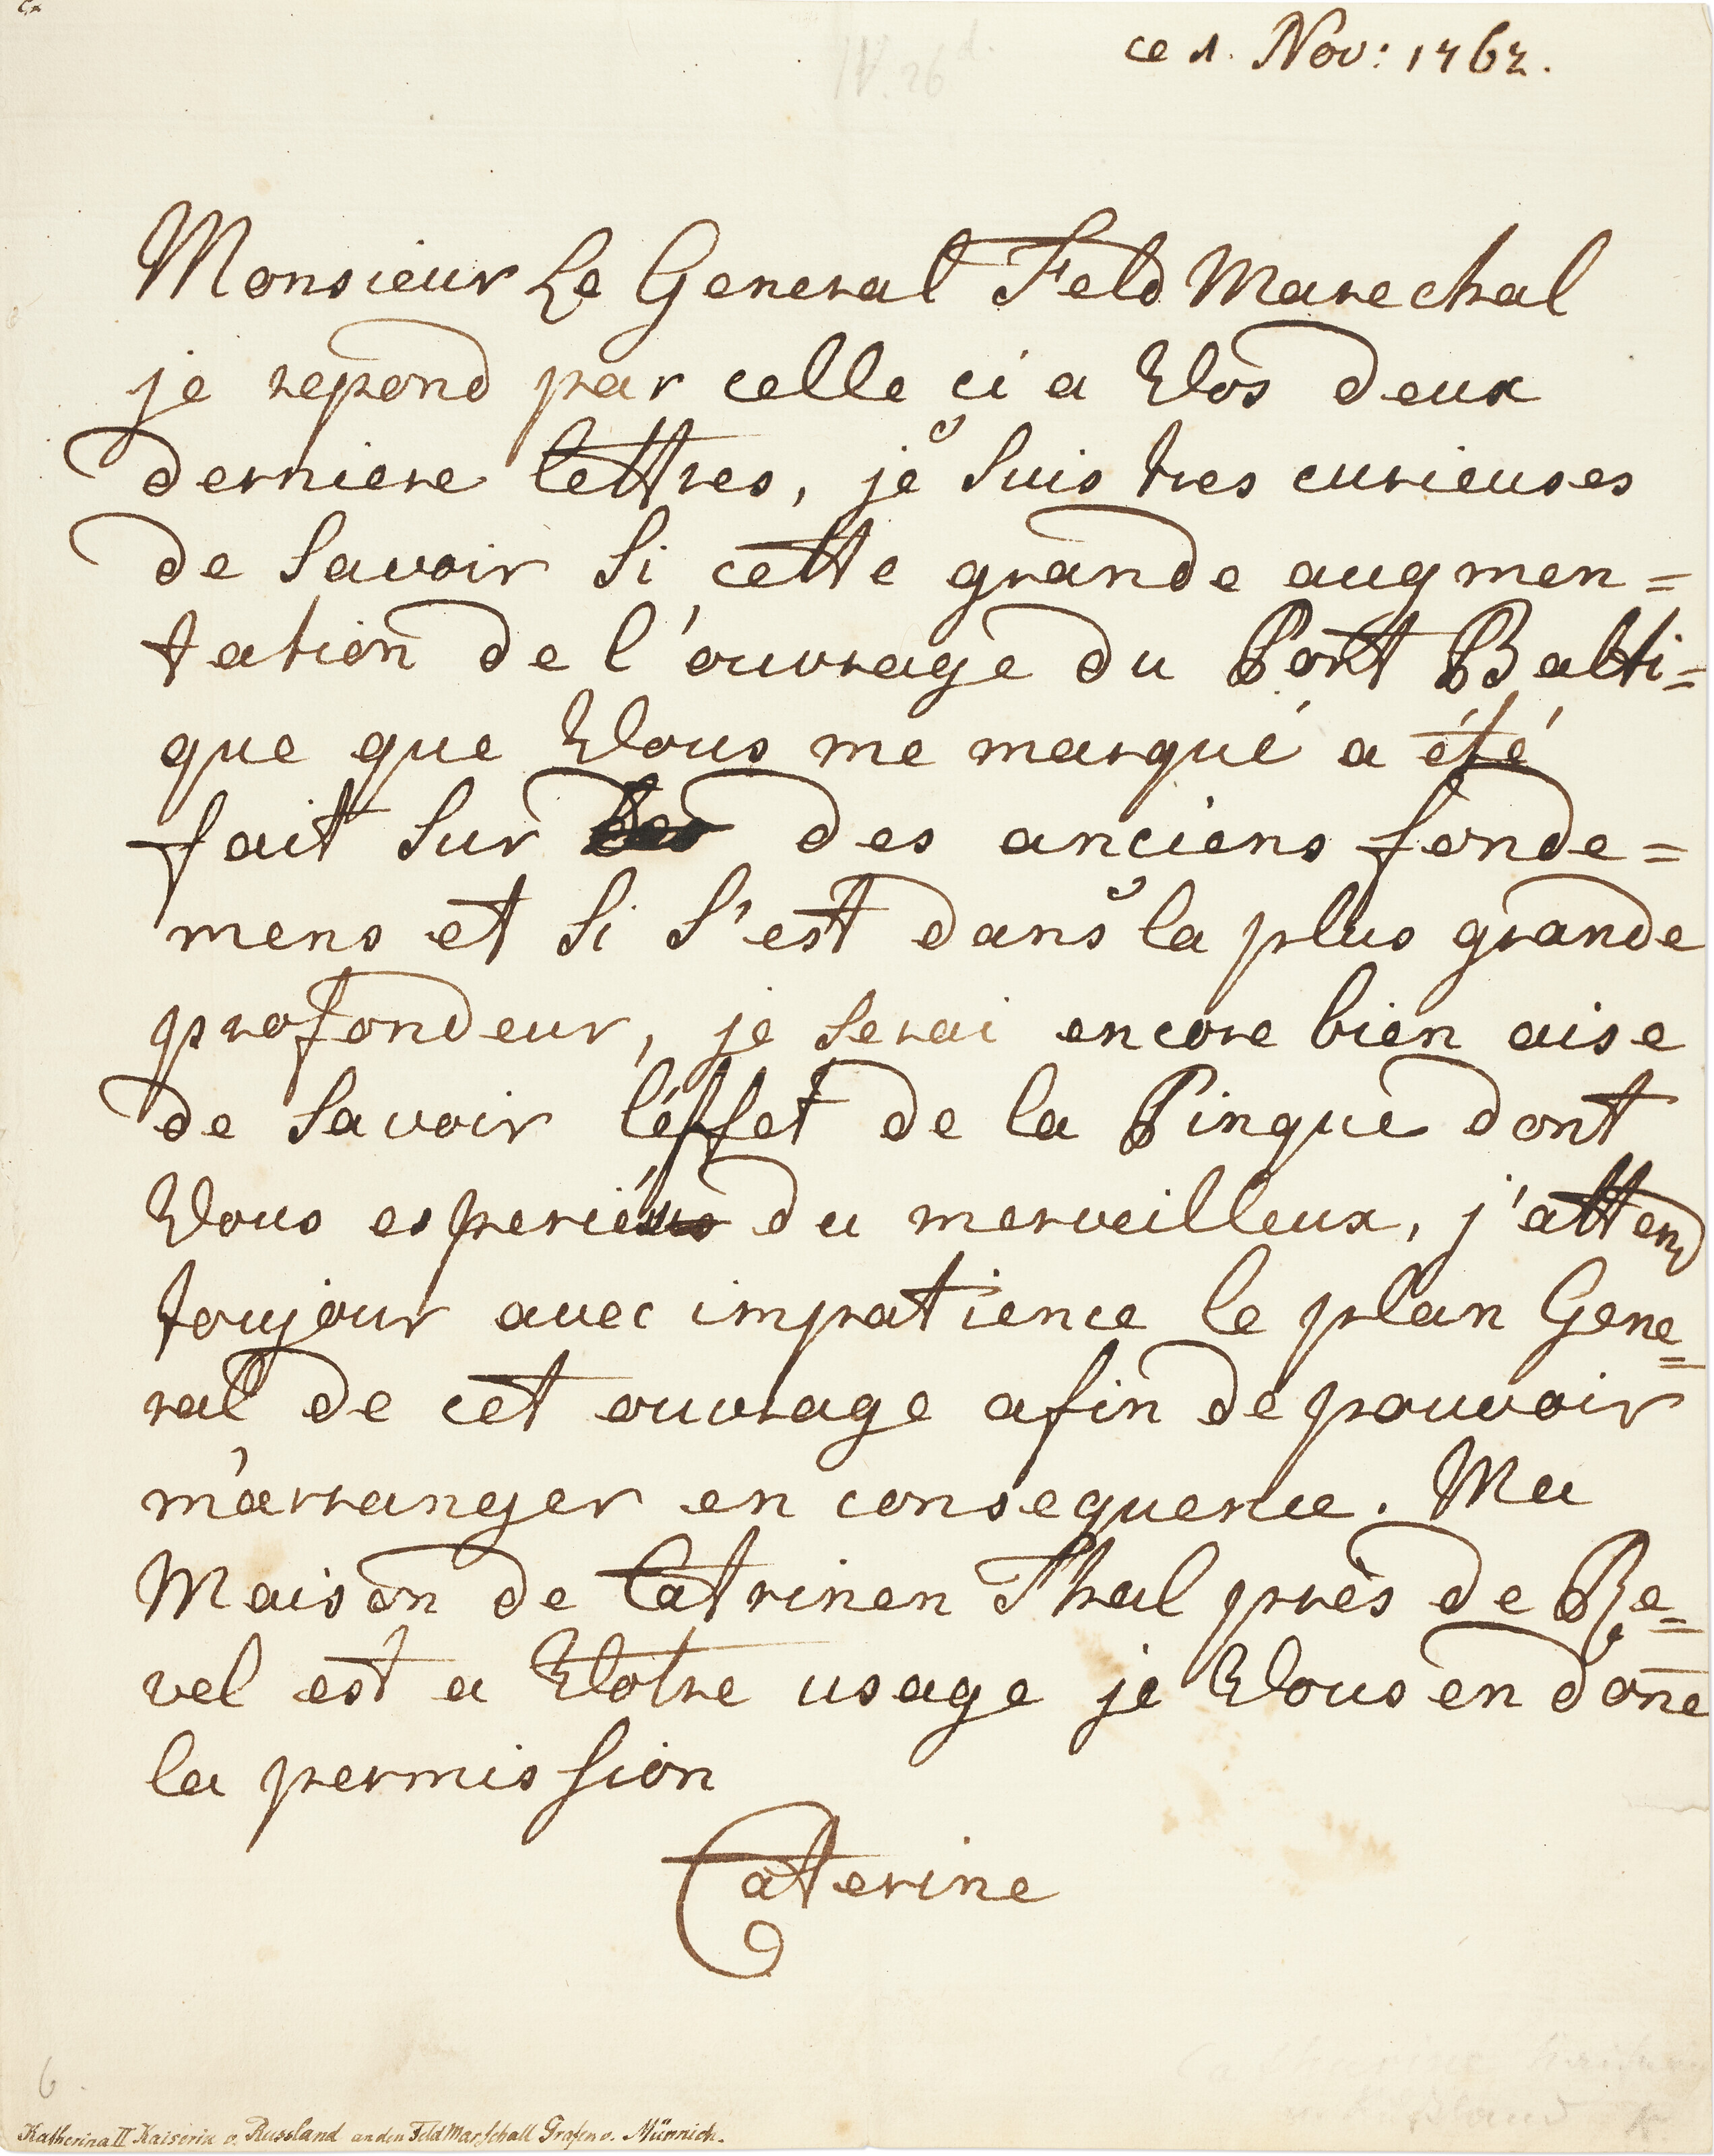 ce 1. Nov: 1762.
Monsieur Le General Feld Marechal
je repond par celle ci a Vos deux
derniere lettres, je suis tres curieuses
de savoir si cette grande augmen=
tation de l'ouvrage du Port Balti=
que que Vous me marqué a été
fait sur des anciens fonde=
mens et si s'est dans la plus grande
profondeur, je serai encore bien aise
de savoir l'éffet de la Pinque dont
Vous esperiés du merveilleux, j'attend
toujour avec impatience le plan Gene=
ral de cet ouvrage afin de pouvoir
m'arranger en consequence. Ma
Maison de Catrinen Thal près de Re=
vel est a Votre usage je Vous en done
la permission
Caterine
6.
Katherina II Kaiserin v. Russland an den Feld Marschall Grafen v. Münnich.